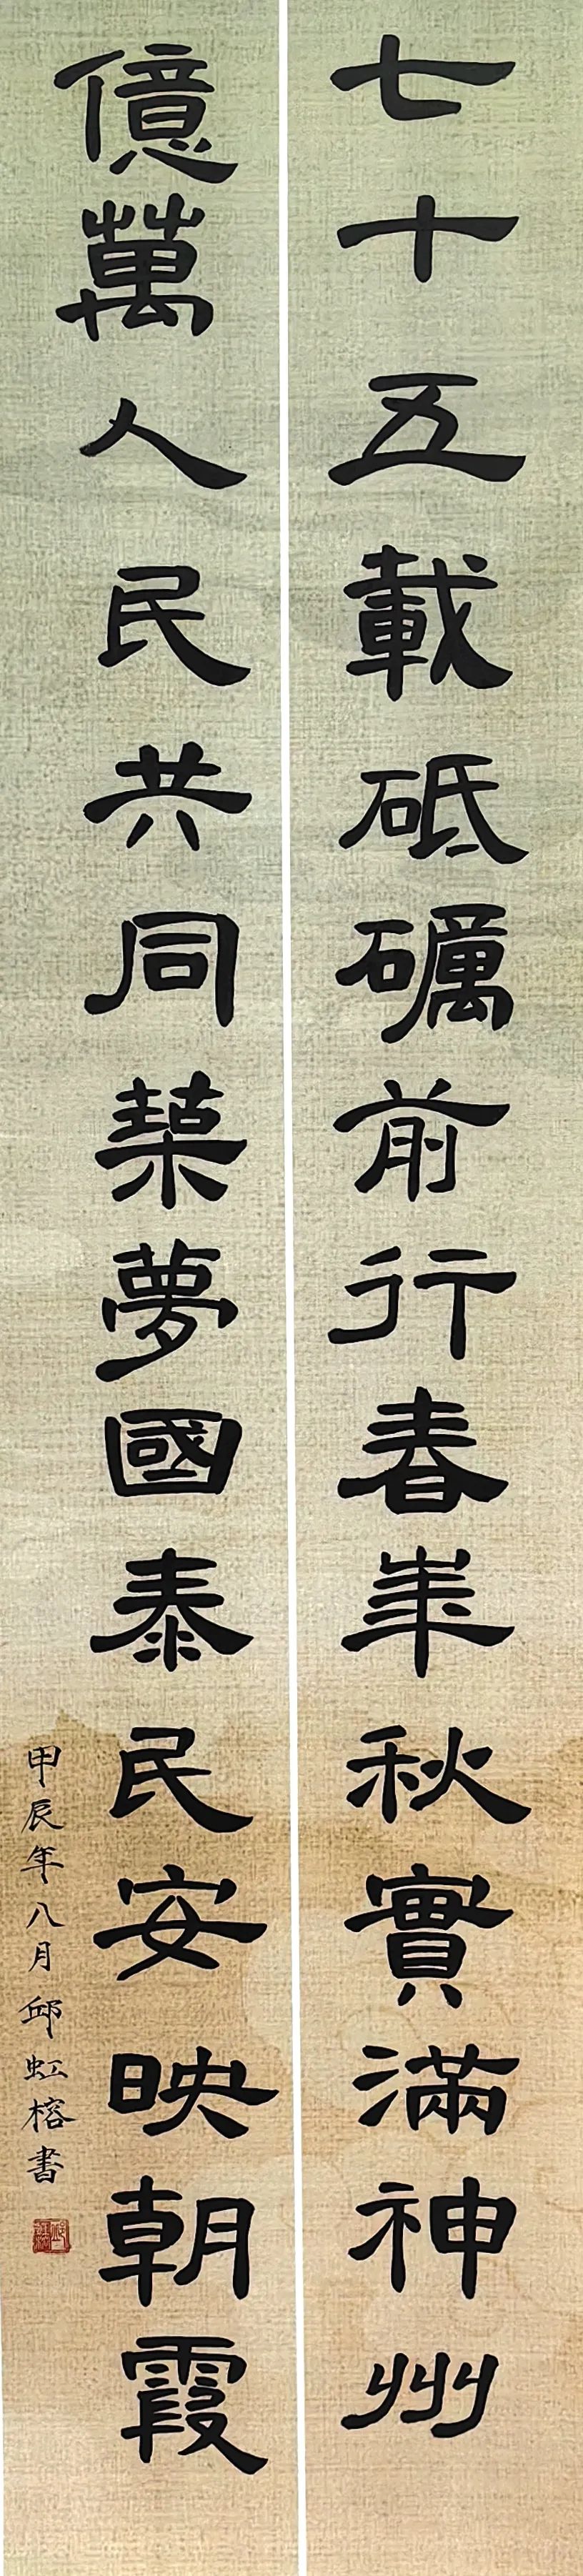 七十五載砥礪前行春華秋實滿神州
億萬人民共同築夢國泰民安映朝霞
甲辰年八月邱虹榕書